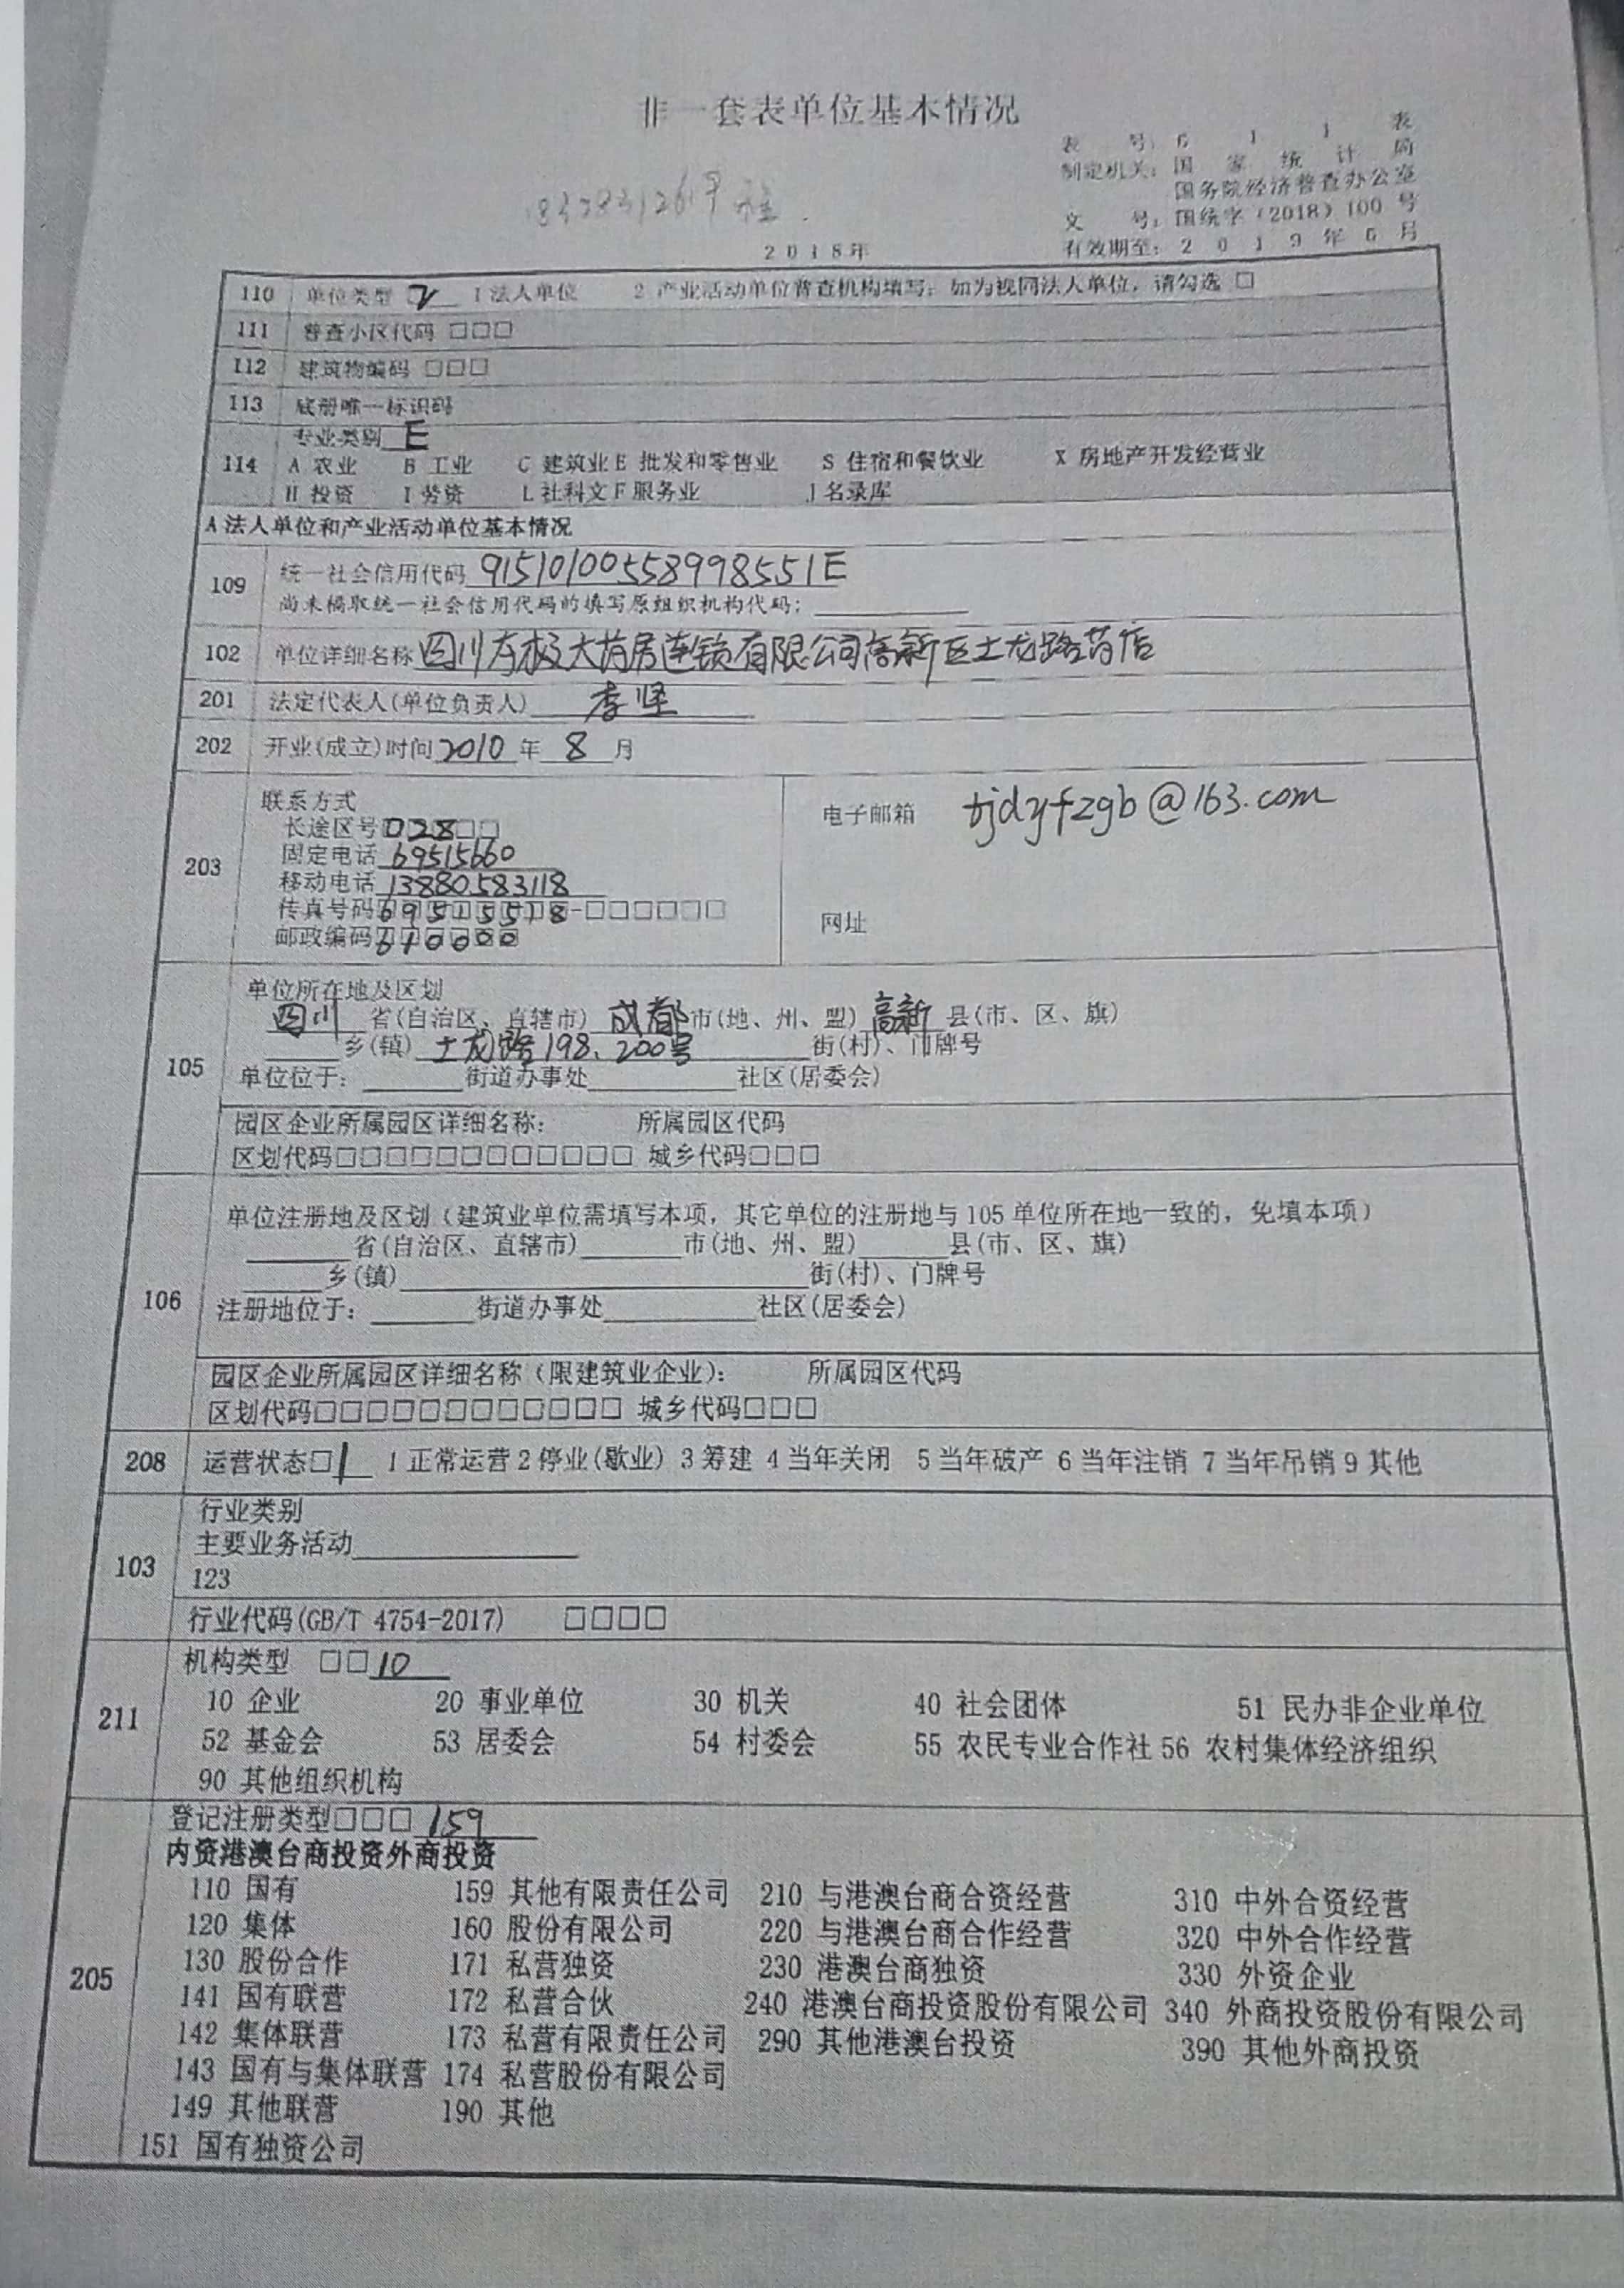 非一套表单位基本情况
表 号: 6 1 1 表
制定机关: 国 家 统 计 局
国务院经济普查办公室
文 号: 国统字(2018)100 号
2018年
有效期至: 2 0 1 9 年 6 月
110 单位类型 2 1 法人单位 2 产业活动单位普查机构填写: 如为视同法人单位, 请勾选 □
111 普查小区代码 □□□
112 建筑物编码 □□□
113 底册唯一标识码
专业类别 E
114 A 农业 B 工业 C 建筑业 E 批发和零售业 S 住宿和餐饮业 X 房地产开发经营业
H 投资 I 劳资 L 社科文 F 服务业 J 名录库
A 法人单位和产业活动单位基本情况
109 统一社会信用代码 91510100558998551E
尚未领取统一社会信用代码的填写原组织机构代码:
102 单位详细名称 四川太极大药房连锁有限公司高新区土龙路药店
201 法定代表人(单位负责人) 李坚
202 开业(成立)时间 2010 年 8 月
203 联系方式
长途区号 028□□
固定电话 69515660
移动电话 13880583118
传真号码 69515518-□□□□□□
邮政编码 610000
电子邮箱 tjdyfzgb@163.com
网址
105 单位所在地及区划
四川 省(自治区、直辖市) 成都 市(地、州、盟) 高新 县(市、区、旗)
乡(镇) 土龙路198、200号 街(村)、门牌号
单位位于: 街道办事处 社区(居委会)
园区企业所属园区详细名称: 所属园区代码
区划代码□□□□□□□□□□□□ 城乡代码□□□
106 单位注册地及区划(建筑业单位需填写本项, 其它单位的注册地与 105 单位所在地一致的, 免填本项)
省(自治区、直辖市) 市(地、州、盟) 县(市、区、旗)
乡(镇) 街(村)、门牌号
注册地位于: 街道办事处 社区(居委会)
园区企业所属园区详细名称(限建筑业企业): 所属园区代码
区划代码□□□□□□□□□□□□ 城乡代码□□□
208 运营状态□ 1 1 正常运营 2 停业(歇业) 3 筹建 4 当年关闭 5 当年破产 6 当年注销 7 当年吊销 9 其他
103 行业类别
主要业务活动
123
行业代码(GB/T 4754-2017) □□□□
211 机构类型 □□ 10
10 企业 20 事业单位 30 机关 40 社会团体 51 民办非企业单位
52 基金会 53 居委会 54 村委会 55 农民专业合作社 56 农村集体经济组织
90 其他组织机构
205 登记注册类型□□□ 159
内资港澳台商投资外商投资
110 国有 159 其他有限责任公司 210 与港澳台商合资经营 310 中外合资经营
120 集体 160 股份有限公司 220 与港澳台商合作经营 320 中外合作经营
130 股份合作 171 私营独资 230 港澳台商独资 330 外资企业
141 国有联营 172 私营合伙 240 港澳台商投资股份有限公司 340 外商投资股份有限公司
142 集体联营 173 私营有限责任公司 290 其他港澳台投资 390 其他外商投资
143 国有与集体联营 174 私营股份有限公司
149 其他联营 190 其他
151 国有独资公司